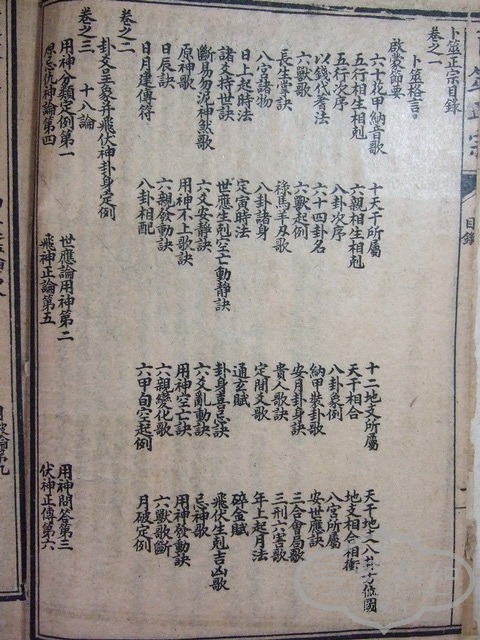 卜筮正宗目錄
卷之一
卜筮格言
啟蒙節要
六十花甲納音歌 十天干所屬 十二地支所屬 天干地支八卦方位圖
五行相生相剋 六親相生相剋 天干相合 地支相合相衝
五行次序 八卦次序 八卦象例 八宮所屬
以錢代蓍法 六十四卦名 納甲裝卦歌 安世應訣
六獸歌 六獸起例 安月卦身訣 三合會局歌
長生掌訣 祿馬羊刃歌 貴人歌訣 三刑六害歌
八宮諸物 八卦諸身 定間爻歌 年上起月法
日上起時法 定寅時法 通玄賦 碎金賦
諸爻持世訣 世應生剋空亡動靜訣 卦身喜忌訣 飛伏生剋吉凶歌
斷易勿泥神煞歌 六爻安靜訣 六爻亂動訣 忌神歌
原神歌 用神不上卦訣 用神空亡訣 用神發動訣
日辰訣 六親發動訣 六親變化歌 六獸歌斷
日月建傳符 八卦相配 六甲旬空起例 月破定例
卷之二
卦爻呈象并飛伏神卦身定例
卷之三 十八論
用神分類定例第一 世應論用神第二 用神問答第三
原忌仇神論第四 飛神正論第五 伏神正傳第六
目錄